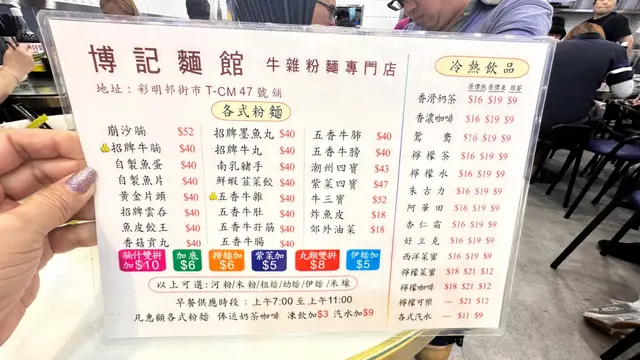 博記麵館 牛雜粉麵專門店
地址：彩明邨街市 T-CM 47 號舖
各式粉麵
崩沙腩 $52
招牌牛腩 $40
自製魚蛋 $40
自製魚片 $40
黃金片頭 $40
招牌雲吞 $40
魚皮餃王 $40
香菇貢丸 $40
招牌墨魚丸 $40
招牌牛丸 $40
南乳豬手 $40
鮮蝦韮菜餃 $40
五香牛雜 $40
五香牛肚 $40
五香牛孖筋 $40
五香牛腸 $40
五香牛肺 $40
五香牛膀 $40
潮州四寶 $43
紫菜四寶 $47
牛三寶 $52
炸魚皮 $18
郊外油菜 $18
腩什雙拼 加$10
加底 $6
撈麵加 $6
紫菜加 $5
丸類雙拼 $8
伊麵加 $5
以上可選：河粉/米粉/粗麵/幼麵/伊麵/米線
早餐供應時段：上午7:00 至上午11:00
凡惠顧各式粉麵 俾送奶茶咖啡 凍飲加$3 汽水加$9
冷熱飲品
原價熱 原價凍 跟餐
香滑奶茶 $16 $19 $9
香濃咖啡 $16 $19 $9
鴛鴦 $16 $19 $9
檸檬茶 $16 $19 $9
檸檬水 $16 $19 $9
朱古力 $16 $19 $9
阿華田 $16 $19 $9
杏仁霜 $16 $19 $9
好立克 $16 $19 $9
西洋菜蜜 $16 $19 $9
檸檬菜蜜 $18 $21 $12
檸檬咖啡 $18 $21 $12
檸檬可樂 --- $21 $12
各式汽水 --- $11 $9